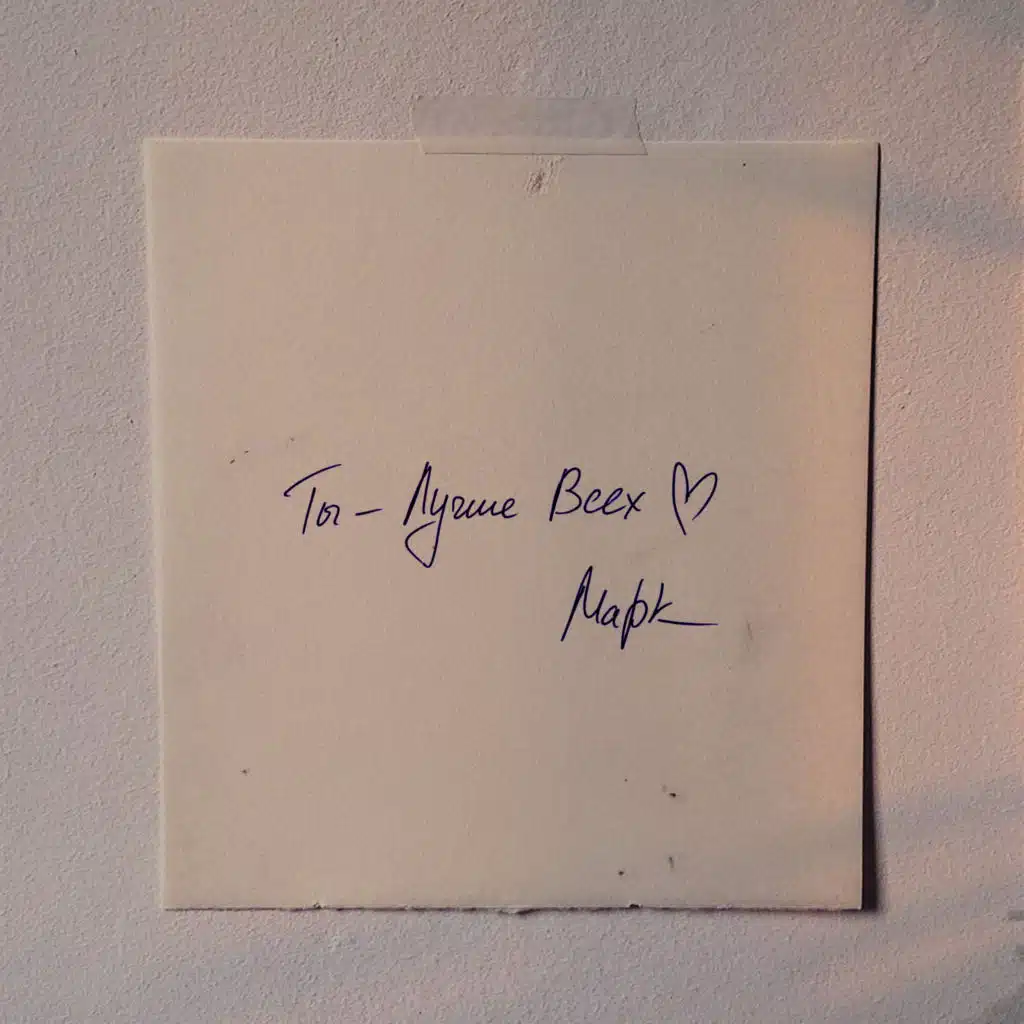 Ты – Лучше Всех ♡
Марк